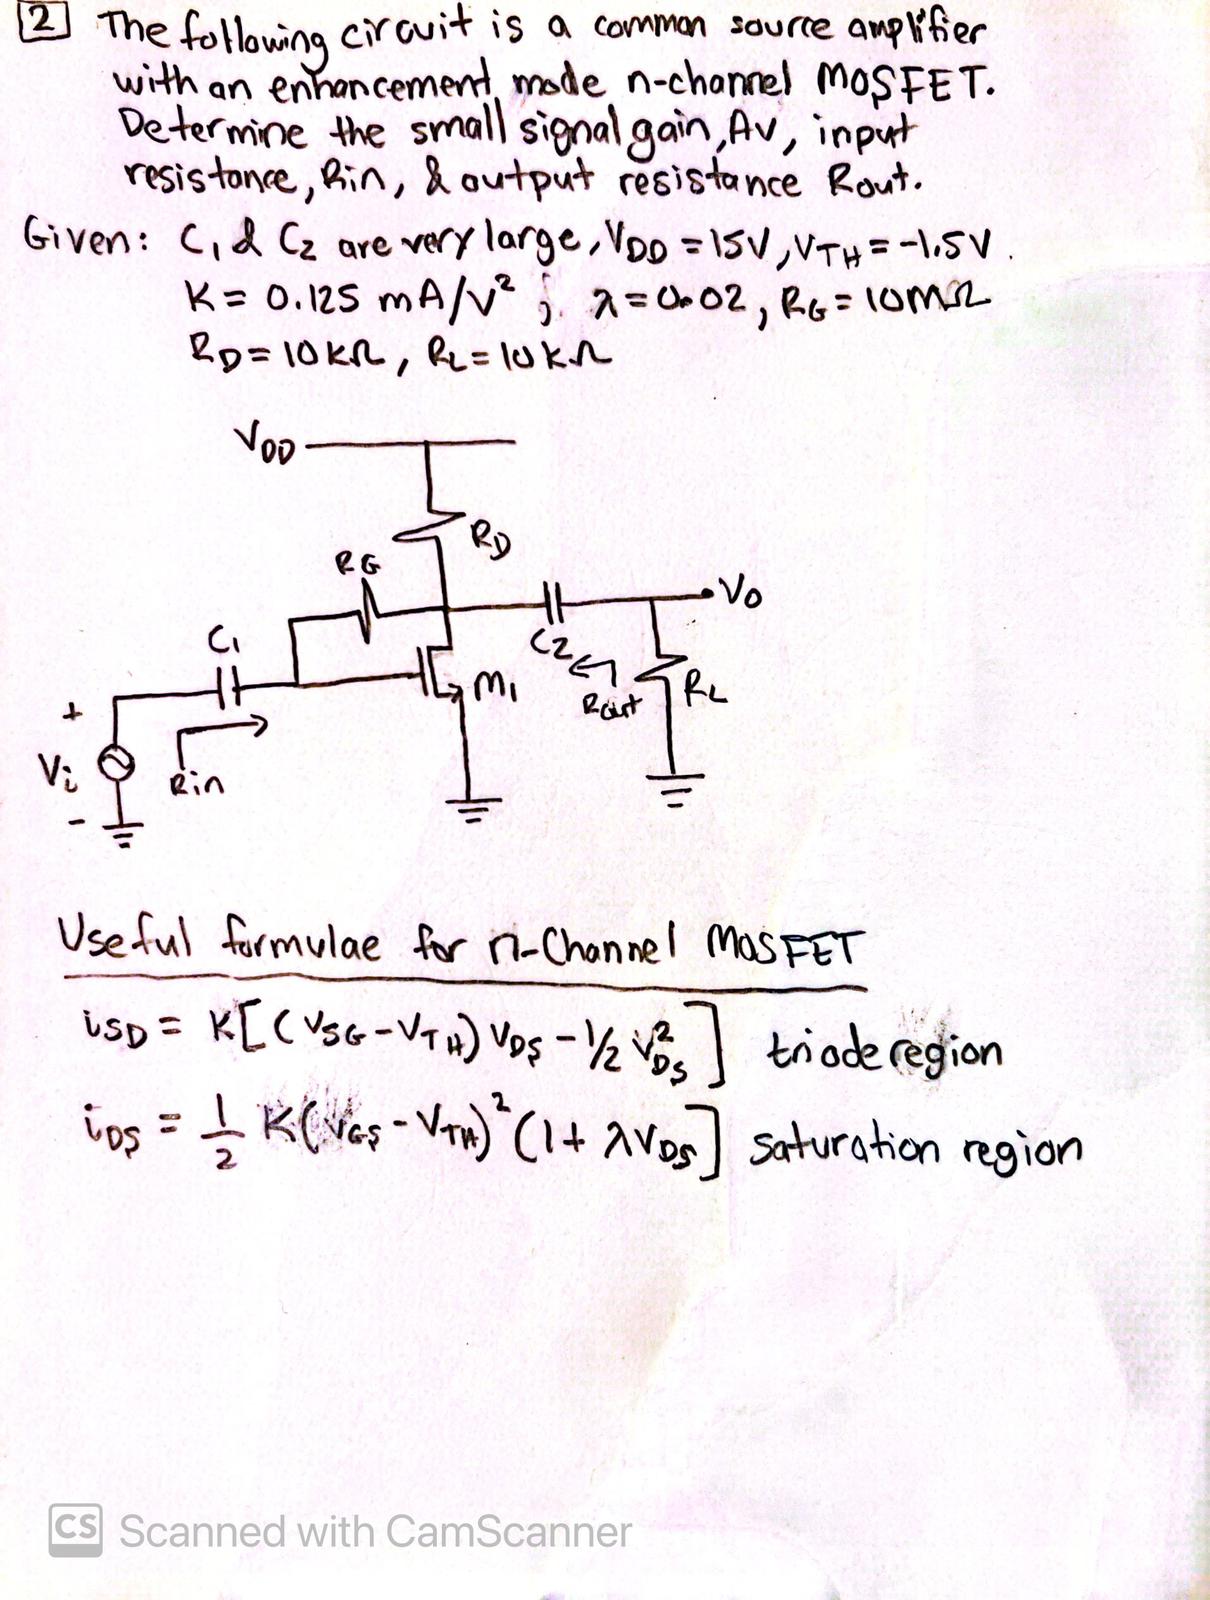 2 The following circuit is a common source amplifier
with an enhancement mode n-channel MOSFET.
Determine the small signal gain, Av, input
resistance, Rin, & output resistance Rout.
Given: C1 & C2 are very large, VDD = 15V, VTH = -1.5V.
K = 0.125 mA/V² ; λ = 0.02, RG = 10MΩ
RD = 10KΩ, RL = 10KΩ
VDD
RD
RG
Vo
C1
C2
M1
Rout
RL
+
Vi
Rin
-
Useful formulae for n-Channel MOSFET
iSD = K[(VSG - VTH) VDS - 1/2 V²DS] triode region
iDS = 1/2 K(VGS - VTH)² (1 + λVDS] saturation region
CS Scanned with CamScanner